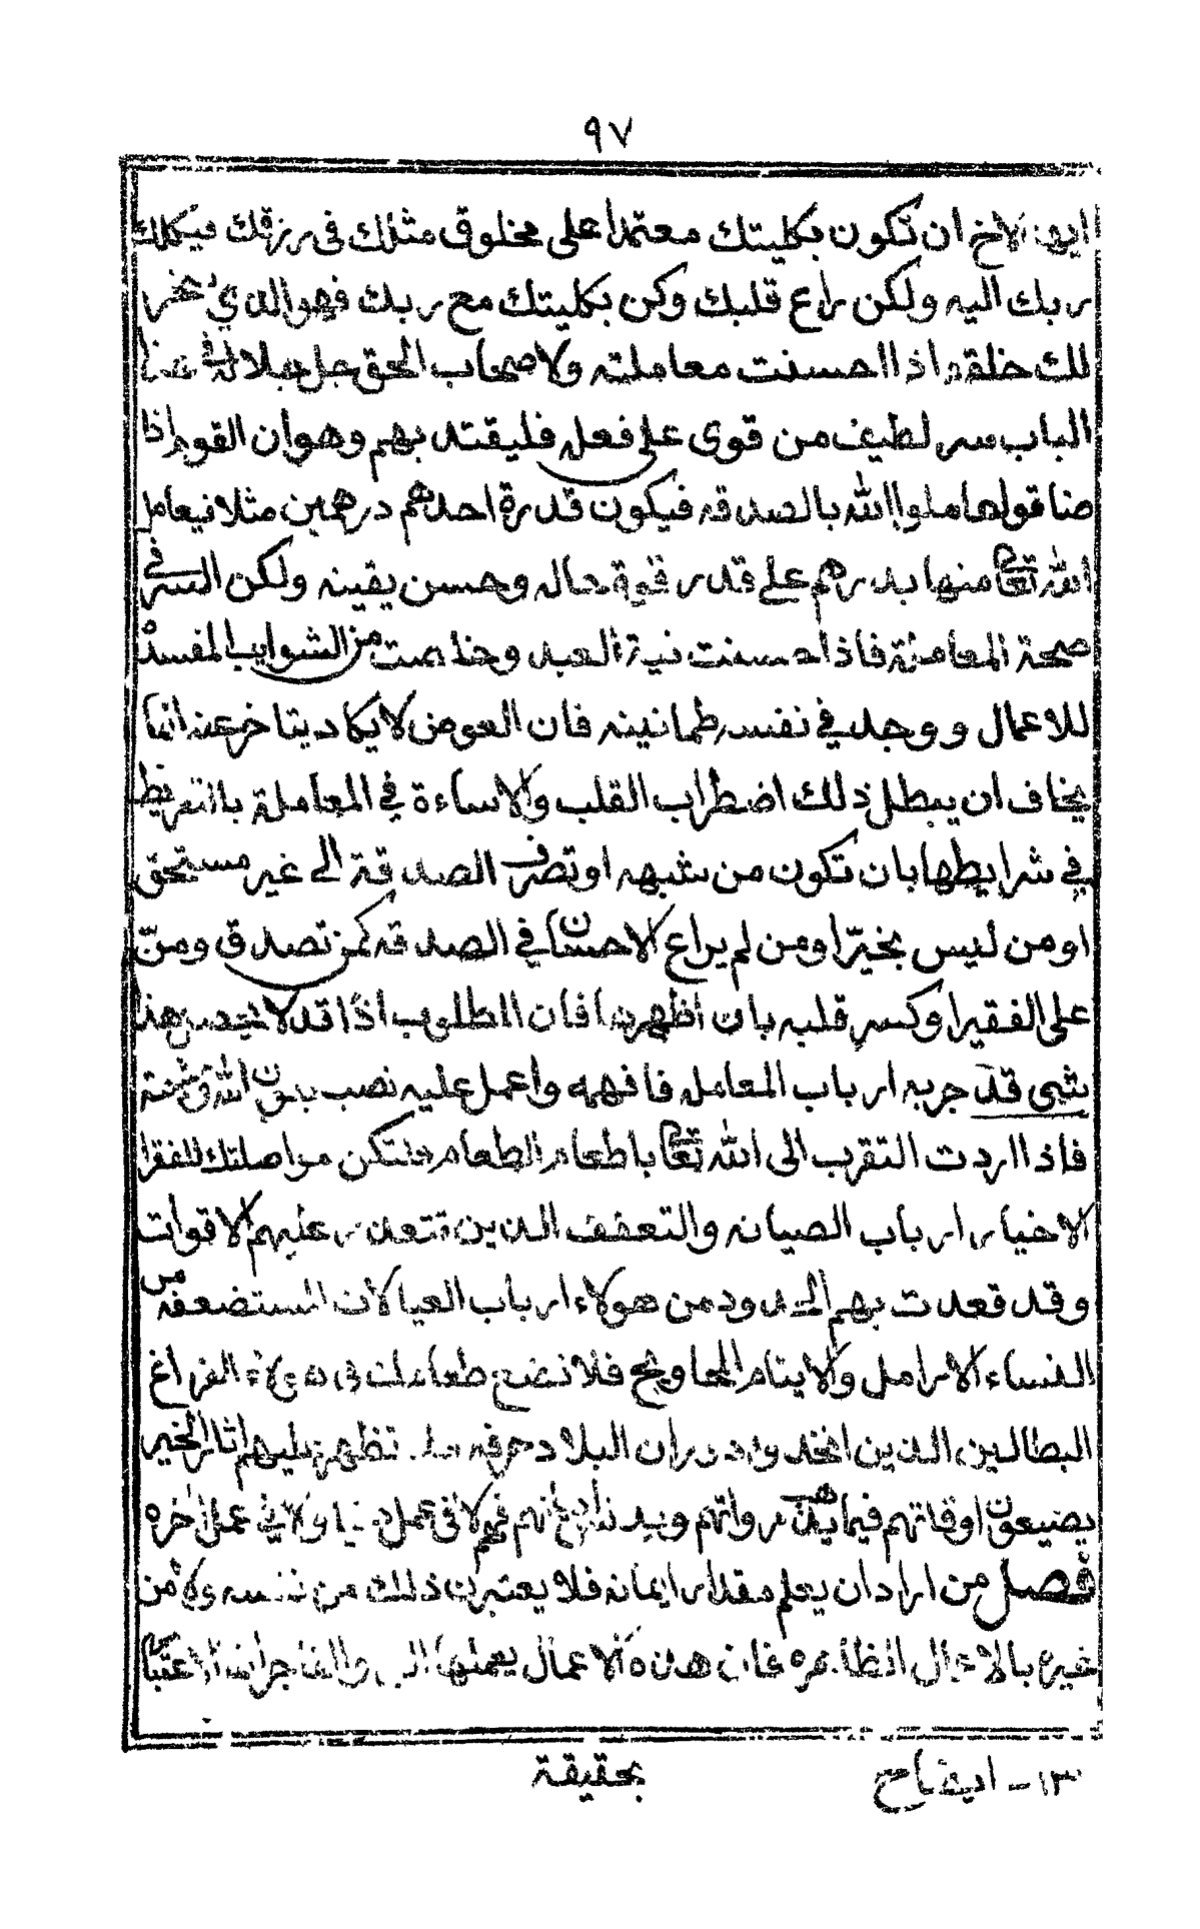 ٩٧
ايها الاخ ان تكون بكليتك معتمدا على مخلوق مثلك فى رزقك فيكلك
ربك اليه ولكن راع قلبك وكن بكليتك مع ربك فهو الذي يسخر
لك خلقه واذا احسنت معاملته ولاصحاب الحق جل جلاله فى هذا
الباب سر لطيف من قوى على فعله فليقتد بهم وهو ان القوم اذا
ضاق قولهم عاملوا الله بالصدقه فيكون قدرة احدهم درهمين مثلا فيعامل
الله تعا منها بدرهم على قدر قوة حاله وحسن يقينه ولكن السر فى
صحة المعاملة فاذا حسنت نية العبد وخلصت من الشوايب المفسدة
للاعمال ووجد في نفسه طمانينه فان العوض لا يكاد يتاخر عنه انما
يخاف ان يبطل ذلك اضطراب القلب والاساءة في المعاملة بالتفريط
في شرايطها بان تكون من شبهه او تصرف الصدقة الى غير مستحق
او من ليس بخيرّ او من لم يراع الاحسان في الصدقه كمن تصدق ومنّ
على الفقير او كسر قلبه بان اظهرها فان المطلوب اذا قد لا يتحصل هذا
شى قد جربه ارباب المعامله فافهمه واعمل عليه نصب بعون الله ومنه
فاذا اردت التقرب الى الله تعا باطعام الطعام فلتكن مواصلتك للفقرا
الاخيار ارباب الصيانه والتعفف الذين تتعذر عليهم الاقوات
وقد قعدت بهم الجدود من هولاء ارباب العيالات المستضعفه من
النساء الارامل والايتام المحاويج فلا تضع طعامك فى هولاء الفراغ
البطالين الذين اتخذوا دوران البلاد حرفه تظهر عليهم اثار الخير
يضيعون اوقاتهم فيما يهدر مرواتهم فهم لا فى عمل دنيا ولا في عمل اخره
فصل من اراد ان يعلم مقدار ايمانه فلا يعتبرن ذلك من نفسه ولا من
غيره بالاعمال الظاهره فان هذه الاعمال يعملها البر والفاجر انما الاعتبا
بحقيقة
١٣ - ايضاح